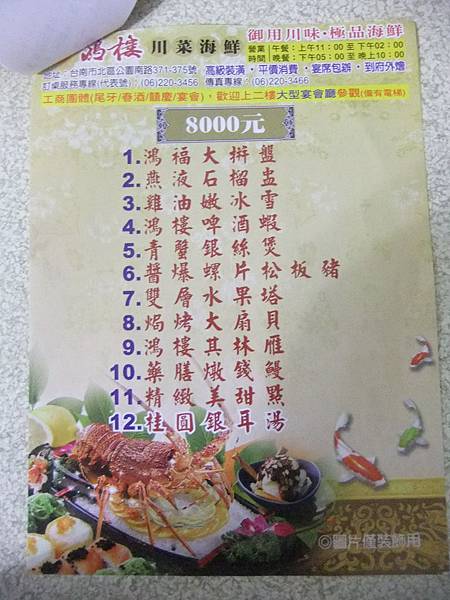 鴻樓 川菜海鮮
御用川味・極品海鮮
營業 午餐：上午11：00 至 下午02：00
時間 晚餐：下午05：00 至 晚上10：00
地址：台南市北區公園南路371-375號
高級裝潢・平價消費・宴席包辦・到府外燴
訂桌服務專線(代表號)：(06)220-3456 傳真專線：(06)220-3466
工商團體(尾牙/春酒/囍慶/宴會)，歡迎上二樓大型宴會廳參觀(備有電梯)
8000元
1.鴻福大拼盤
2.燕液石榴盅
3.雞油嫩冰雪
4.鴻樓啤酒蝦
5.青蟹銀絲煲
6.醬爆螺片松板豬
7.雙層水果塔
8.焗烤大扇貝
9.鴻樓其林雁
10.藥膳燉錢鰻
11.精緻美甜點
12.桂圓銀耳湯
◎圖片僅裝飾用